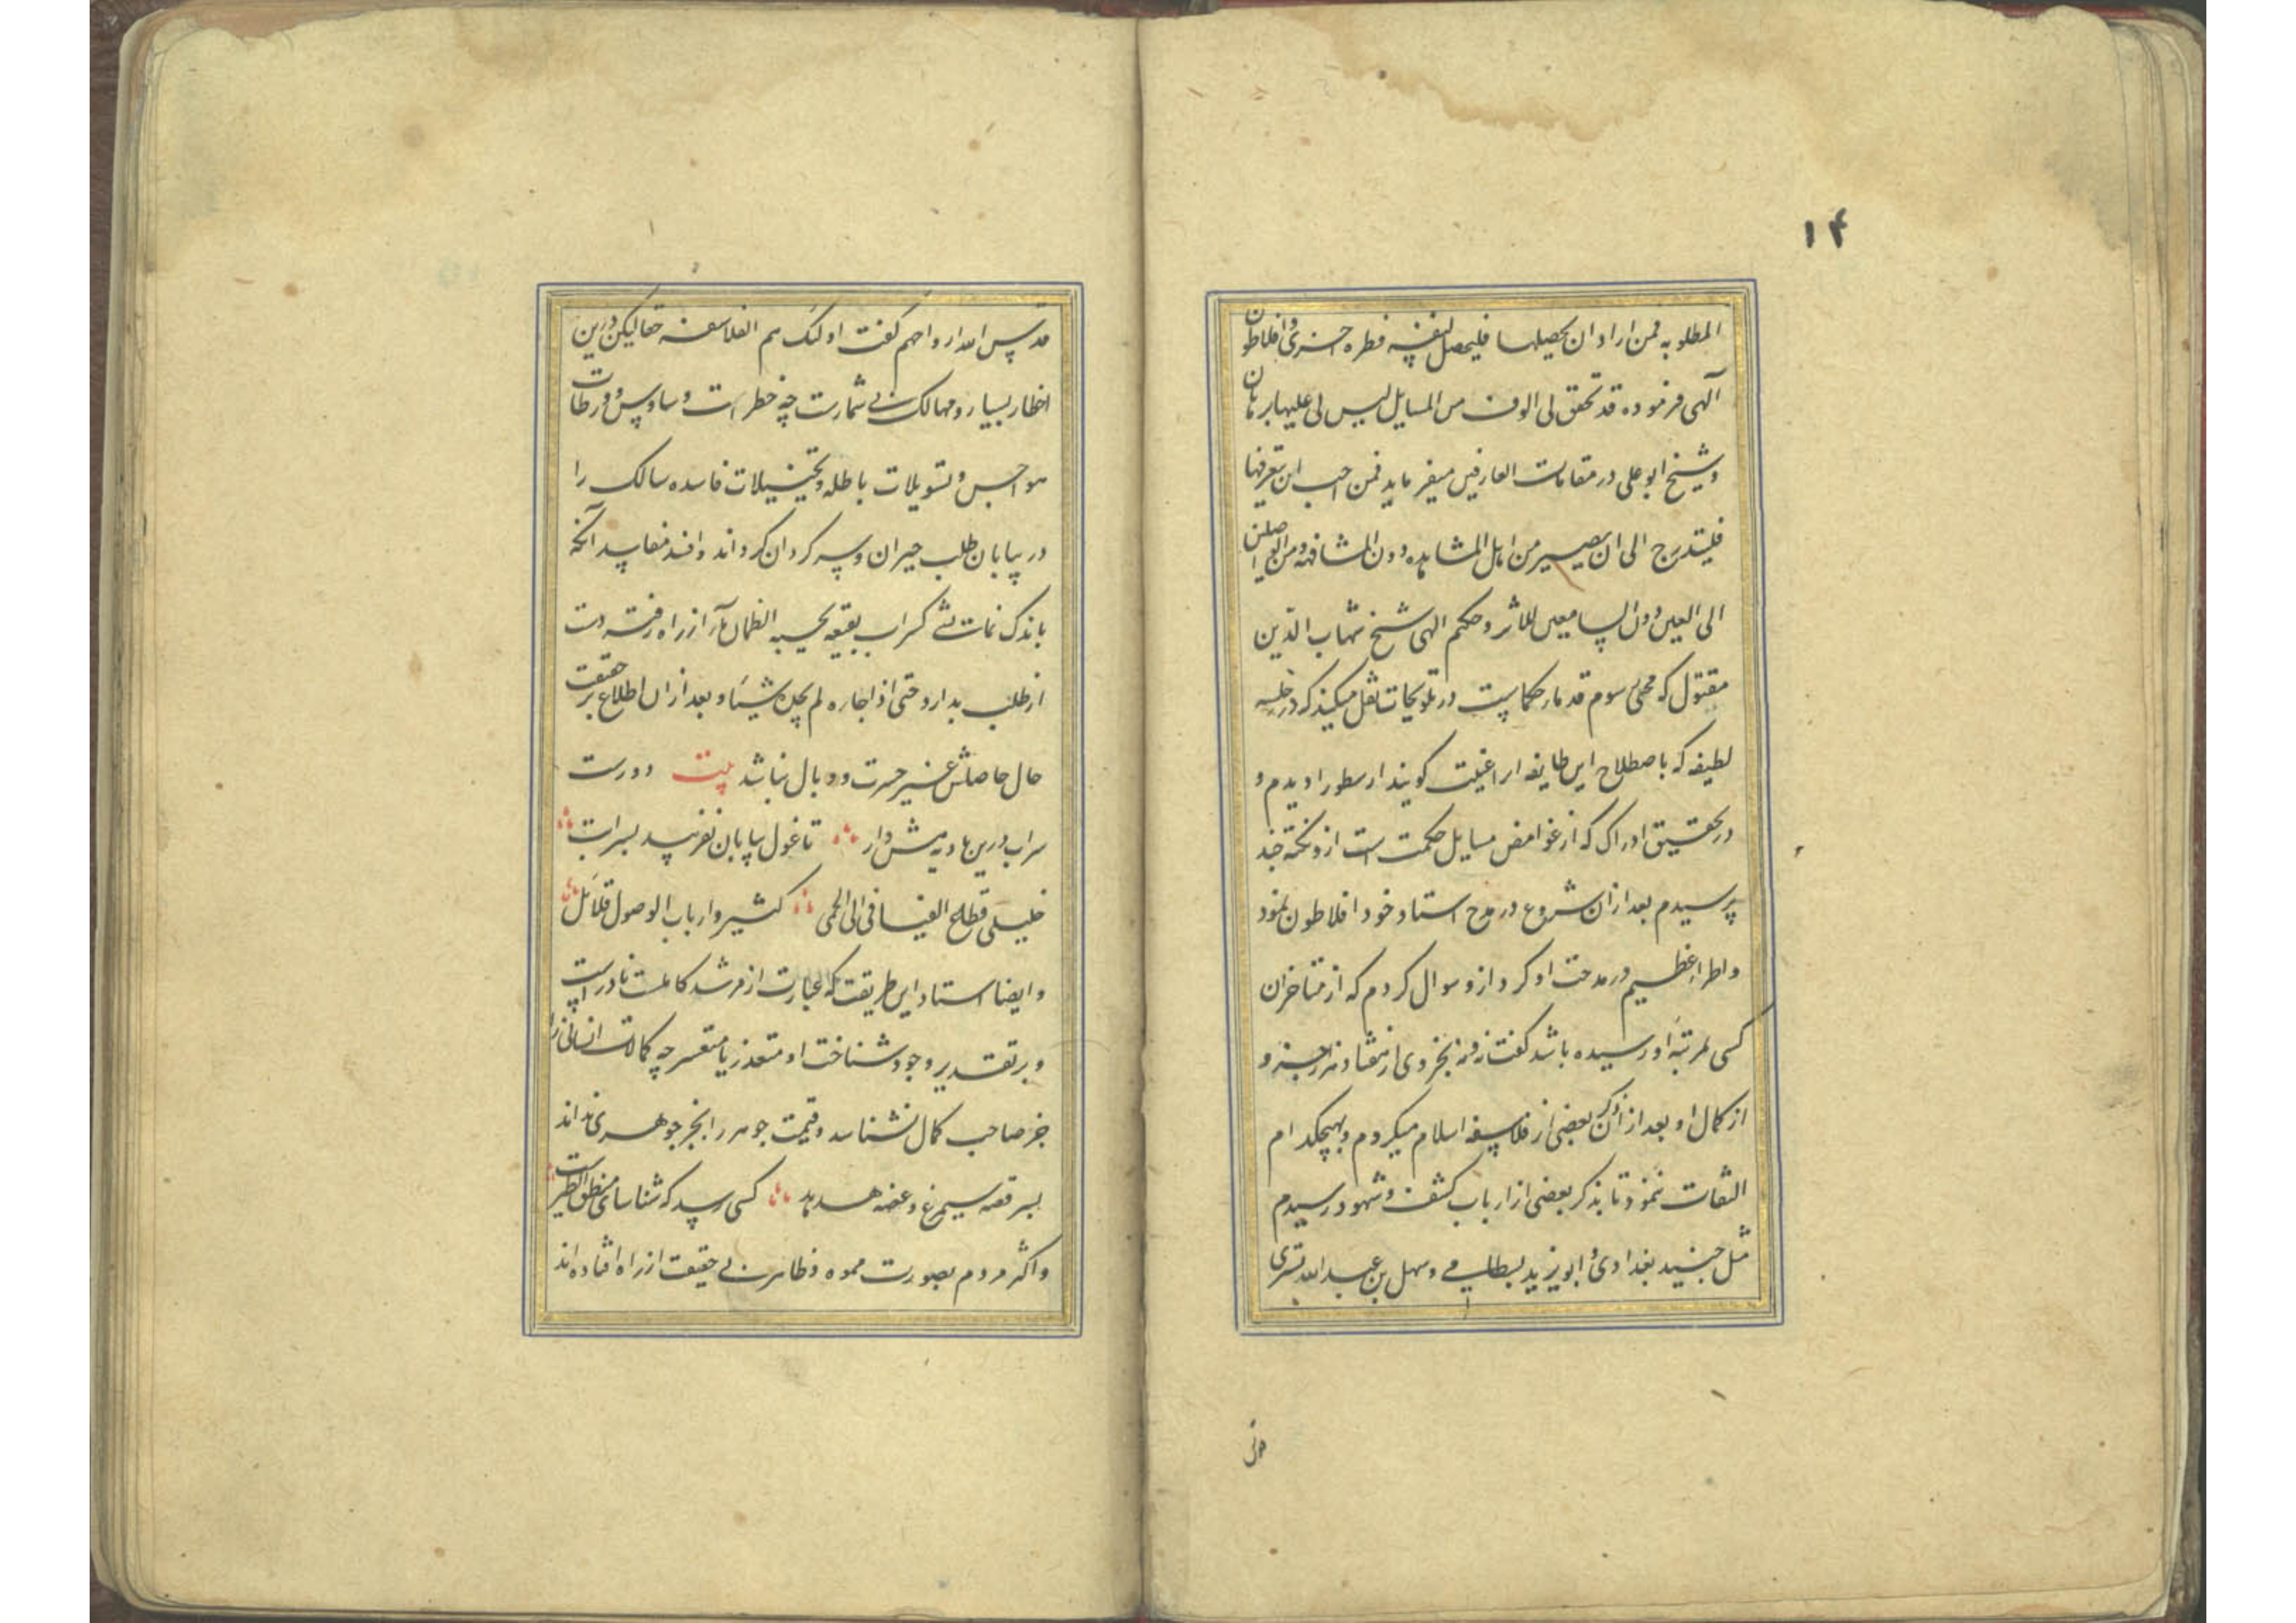 ۱۴
المطلوبه فمن اراد ان یحصلها فلیحصل لنفسه فطره اخری و افلاطون
آلهی فرموده قد تحقق لی الوف من المسایل لیس لی علیها برهان
و شیخ ابو علی در مقامات العارفین میفرماید فمن احب ان یتعرفها
فلیتدرج الی ان یصیر من اهل المشاهده دون المشافهه و من الواصلین
الی العین دون السامعین للاثر و حکیم الهی شیخ شهاب الدین
مقتول که محیی رسوم قدمار حکماست در تلویحات نقل میکند که در خلسه
لطیفه که باصطلاح این طایفه انرا غیبت کویند ارسطو را دیدم و
در تحقیق ادراک که از غوامض مسایل حکمت است ازو نکته چند
پرسیدم بعد ازان شروع در مدح استاد خود افلاطون نمود
و اطراء عظیم در مدحت او کرد ازو سوال کردم که از متاخران
کسی بمرتبه او رسیده باشد کفت نه و نه بجزوی از هفتاد هزار جزو
از کمال او بعد ازان ذکر بعضی از فلاسفه اسلام میکردم و بهیچکدام
التفات ننمود تا بذکر بعضی از ارباب کشف و شهود رسیدم
مثل جنید بغدادی و ابو یزید بسطامی و سهل بن عبد الله تستری
قدس الله ارواحهم کفت اولئک هم الفلاسفه حقا لیکن درین
اخطار بسیار و مهالک بی شمارست چه خطرات وساوس و ورطات
هواجس و تسویلات باطله و تخییلات فاسده سالک را
در بیابان طلب حیران و سرکردان کرداند و افسد مفاسد آنکه
باندک نمایشی کسراب بقیعه یحسبه الظمان مآء از راه رفته دست
از طلب بدارد حتی اذا جاءه لم یجده شیئا و بعد ازان اطلاع بر حقیقت
حال حاصلش غیر حسرت و وبال نباشد بیت دورست
سراب درین بادیه هش دار تا غول بیابان نفریبد بسرابت
خلیلی قطاع الفیافی الی الحمی کثیر و ارباب الوصول قلائل
و ایضا استاد این طریقت که عبارت از مرشد کاملست نادرست
و بر تقدیر وجود شناخت او متعذر یا متعسر چه کمالات انسانی را
جز صاحب کمال نشناسد و قیمت جوهر را بجز جوهری نداند
بسر قصه سیمرغ و غصه هدهد کسی رسد که شناسای منطق الطیرست
و اکثر مردم بصورت مموه و ظاهر بی حقیقت از راه افتاده اند